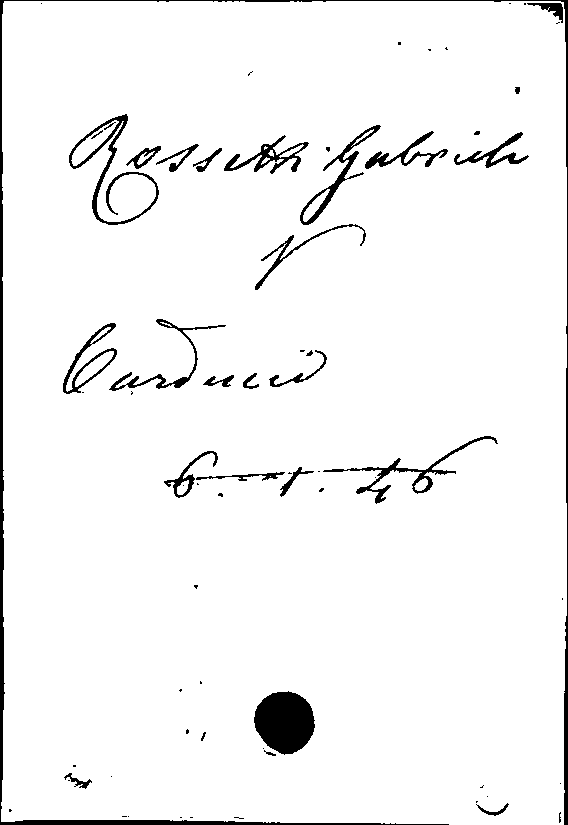 Rossetti Gabriele
V
Carducci
6. - 1. 46